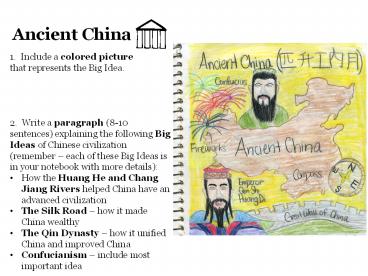 Ancient China
1. Include a colored picture
that represents the Big Idea.
2. Write a paragraph (8-10
sentences) explaining the following Big
Ideas of Chinese civilization
(remember – each of these Big Ideas is
in your notebook with more details):
• How the Huang He and Chang
Jiang Rivers helped China have an
advanced civilization
• The Silk Road – how it made
China wealthy
• The Qin Dynasty – how it unified
China and improved China
• Confucianism – include most
important idea
Ancient China
Confucius
Fireworks
Ancient China
Compass
N
E
S
Emperor
Qin Shi
Huang Di
Great Wall of China